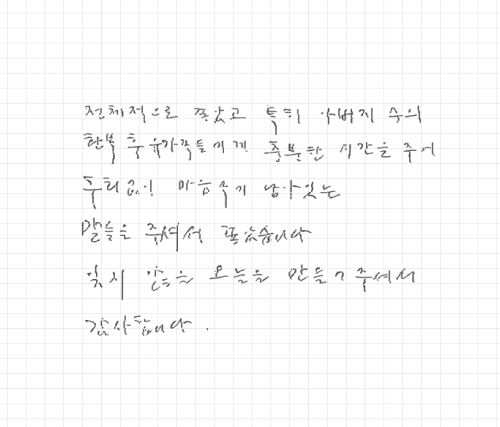 전체적으로 좋았고 특히 아버지 수의
환복 후 유가족들에게 충분한 시간을 주어
후회없이 마음속에 남아있는
말들을 주셔서 좋았습니다
잊지 않을 오늘을 만들어주셔서
감사합니다.